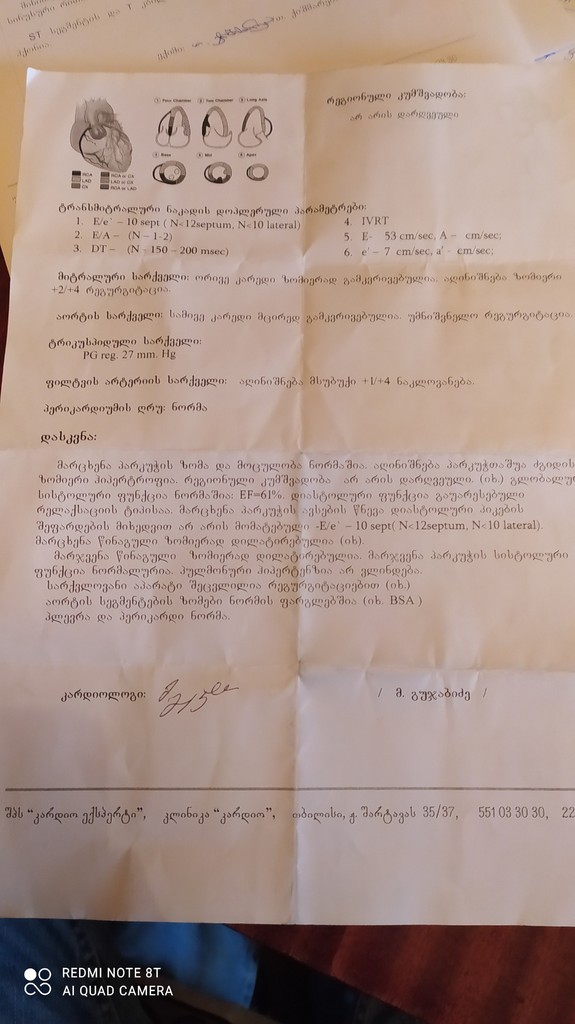 ST სეგმენტის და T
ექიმი:
① Four Chamber ② Two Chamber ③ Long Axis
④ Base ⑤ Mid ⑥ Apex
RCA RCA or CX
LAD LAD or CX
CX RCA or LAD
რეგიონული კუმშვადობა:
არ არის დარღვეული
ტრანსმიტრალური ნაკადის დოპლერული პარამეტრები:
1. E/e´ – 10 sept ( N<12septum, N<10 lateral)
2. E/A – (N – 1-2)
3. DT – (N – 150 – 200 msec)
4. IVRT
5. E- 53 cm/sec, A – cm/sec;
6. e′ – 7 cm/sec, a′ - cm/sec;
მიტრალური სარქველი: ორივე კარედი ზომიერად გამკვრივებულია. აღინიშნება ზომიერი
+2/+4 რეგურგიტაცია.
აორტის სარქველი: სამივე კარედი მცირედ გამკვრივებულია. უმნიშვნელო რეგურგიტაცია.
ტრიკუსპიდული სარქველი:
PG reg. 27 mm. Hg
ფილტვის არტერიის სარქველი: აღინიშნება მსუბუქი +1/+4 ნაკლოვანება.
პერიკარდიუმის ღრუ: ნორმა
დასკვნა:
მარცხენა პარკუჭის ზომა და მოცულობა ნორმაშია. აღინიშნება პარკუჭთაშუა ძგიდის
ზომიერი ჰიპერტროფია. რეგიონული კუმშვადობა არ არის დარღვეული. (იხ.) გლობალურ
სისტოლური ფუნქცია ნორმაშია: EF=61%. დიასტოლური ფუნქცია გაუარესებული
რელაქსაციის ტიპისაა. მარცხენა პარკუჭის ავსების წნევა დიასტოლური პიკების
შეფარდების მიხედვით არ არის მომატებული -E/e´ – 10 sept( N<12septum, N<10 lateral).
მარცხენა წინაგული ზომიერად დილატირებულია (იხ).
მარჯვენა წინაგული ზომიერად დილატირებულია. მარჯვენა პარკუჭის სისტოლური
ფუნქცია ნორმალურია. პულმონური ჰიპერტენზია არ ვლინდება.
სარქვლოვანი აპარატი შეცვლილია რეგურგიტაციებით (იხ.)
აორტის სეგმენტების ზომები ნორმის ფარგლებშია (იხ. BSA )
პლევრა და პერიკარდი ნორმა.
კარდიოლოგი: / მ. გუჯაბიძე /
შპს “კარდიო ექსპერტი”, კლინიკა “კარდიო”, თბილისი, ჟ. შარტავას 35/37, 551 03 30 30, 22
REDMI NOTE 8T
AI QUAD CAMERA